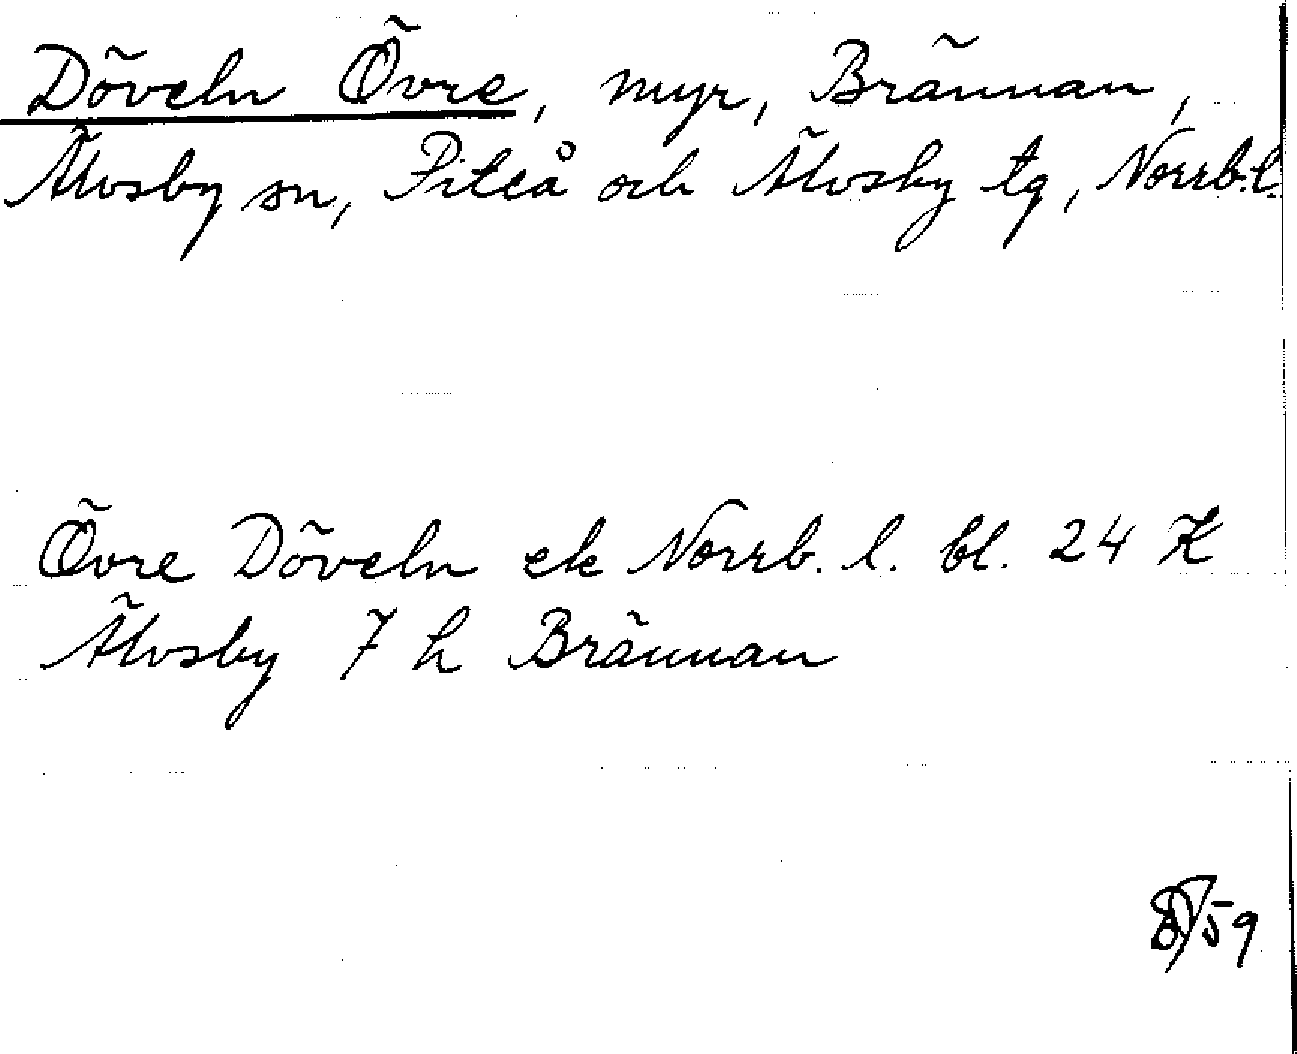 Döveln Övre, myr, Brännan,
Älvsby sn, Piteå och Älvsby tg, Norrb.l.
Övre Döveln ek Norrb. l. bl. 24 K
Älvsby 7 h Brännan
59